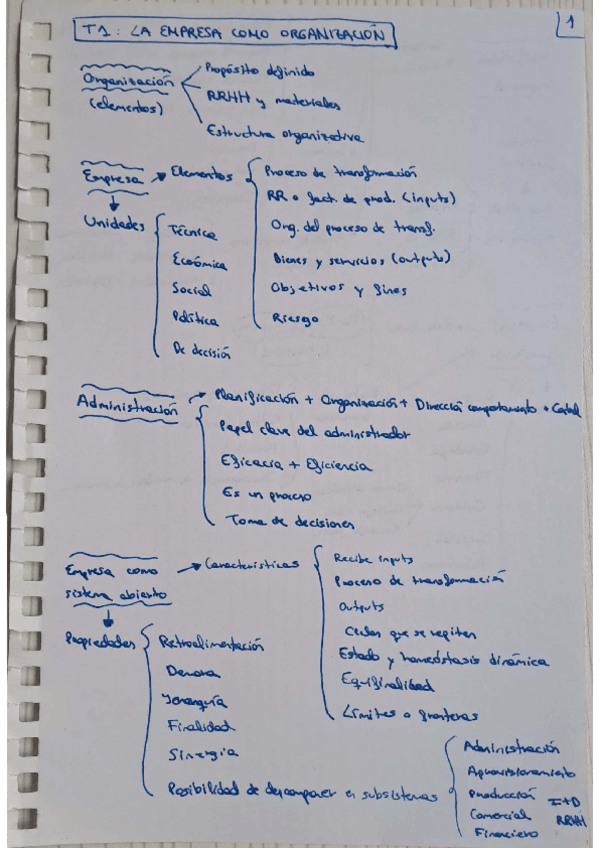 T1: LA EMPRESA COMO ORGANIZACIÓN
1
Organización
(elementos)
Propósito definido
RRHH y materiales
Estructura organizativa
Empresa → Elementos
Proceso de transformación
RR o fact. de prod. (inputs)
Org. del proceso de transf.
Bienes y servicios (outputs)
Objetivos y fines
Riesgo
Unidades
Técnica
Económica
Social
Política
De decisión
Administración → Planificación + Organización + Dirección comportamiento + Control
Papel clave del administrador
Eficacia + Eficiencia
Es un proceso
Toma de decisiones
Empresa como
sistema abierto
→ Características
Recibe inputs
Proceso de transformación
Outputs
Ciclos que se repiten
Estado y homeóstasis dinámica
Equifinalidad
Límites o fronteras
Propiedades
Retroalimentación
Demora
Jerarquía
Finalidad
Sinergia
Posibilidad de descomponer en subsistemas
Administración
Aprovisionamiento
Producción I+D
Comercial RRHH
Financiero